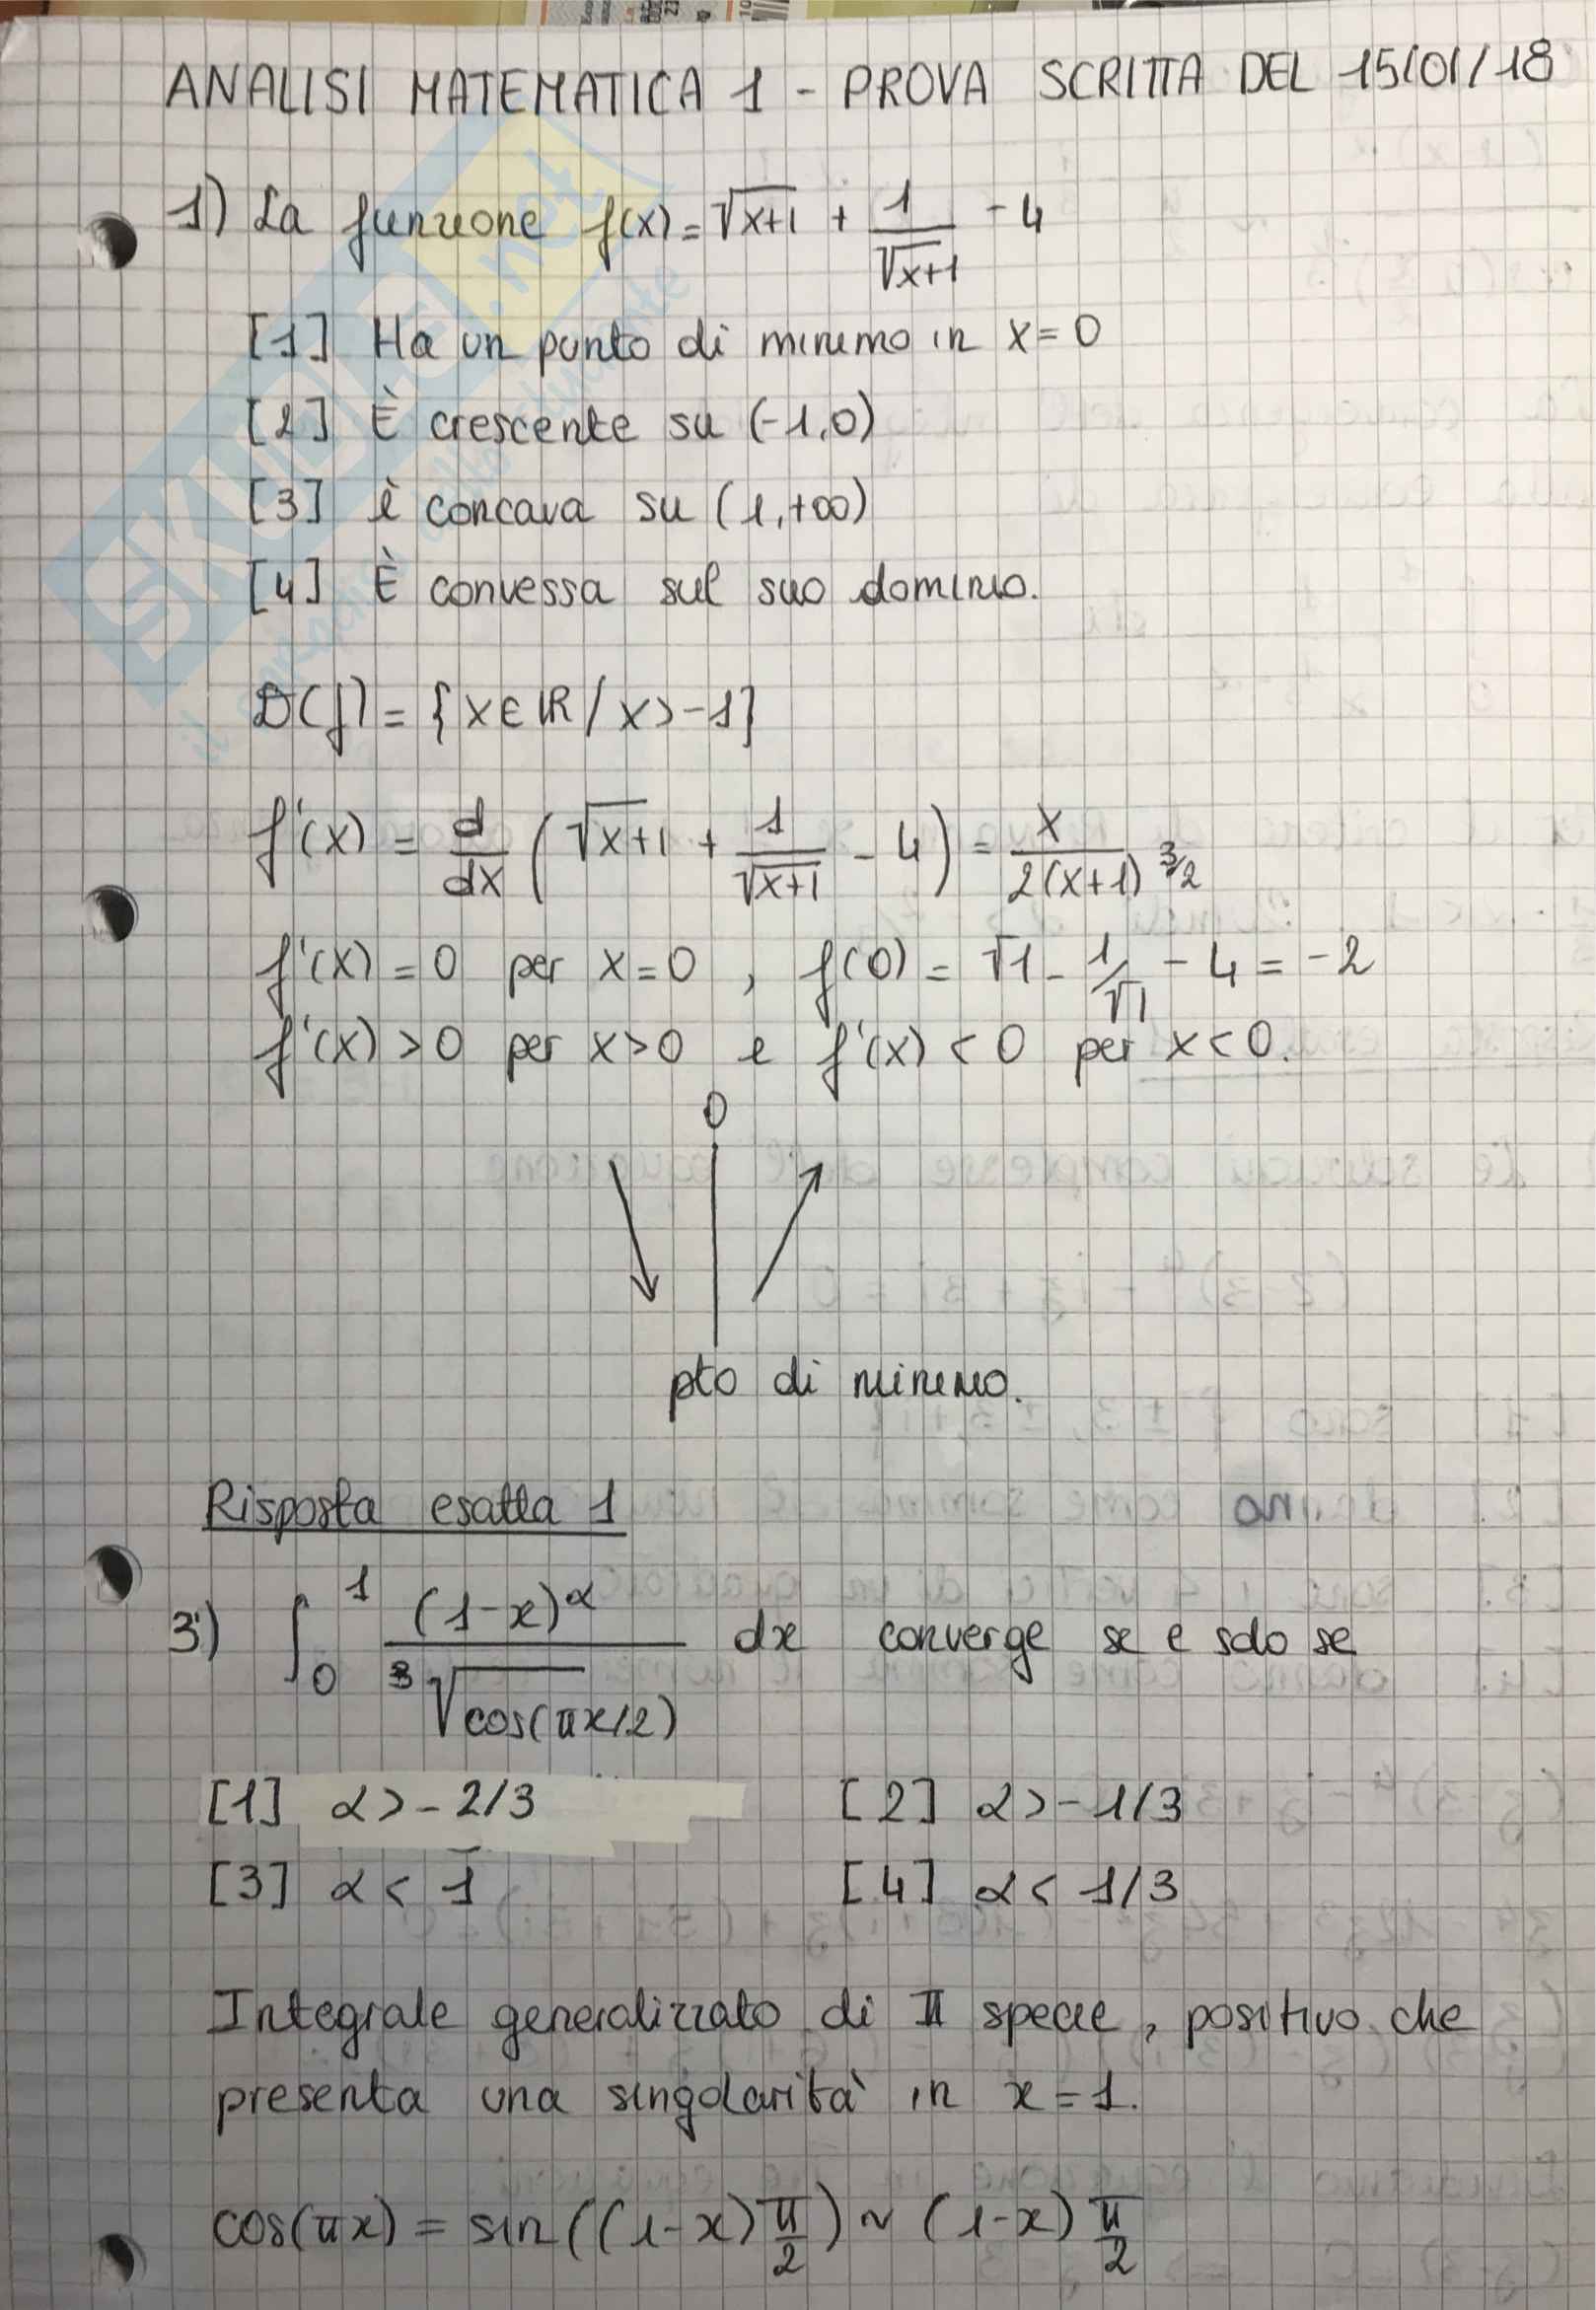 ANALISI MATEMATICA 1 - PROVA SCRITTA DEL 15/01/18
1) La funzione f(x) = √x+1 + 1/√x+1 - 4
[1] Ha un punto di minimo in x = 0
[2] È crescente su (-1,0)
[3] è concava su (1,+∞)
[4] È convessa sul suo dominio.
D(f) = {x ∈ ℝ / x > -1}
f'(x) = d/dx (√x+1 + 1/√x+1 - 4) = x / 2(x+1)^3/2
f'(x) = 0 per x = 0 , f(0) = √1 - 1/√1 - 4 = -2
f'(x) > 0 per x > 0 e f'(x) < 0 per x < 0.
0
pto di minimo.
Risposta esatta 1
3) ∫_0^1 (1-x)^α / ∛cos(πx/2) dx converge se e solo se
[1] α > - 2/3 [2] α > - 1/3
[3] α < 1 [4] α < 1/3
Integrale generalizzato di II specie, positivo che
presenta una singolarità in x = 1.
cos(πx) = sin((1-x) π/2) ~ (1-x) π/2
SKUOLA.net